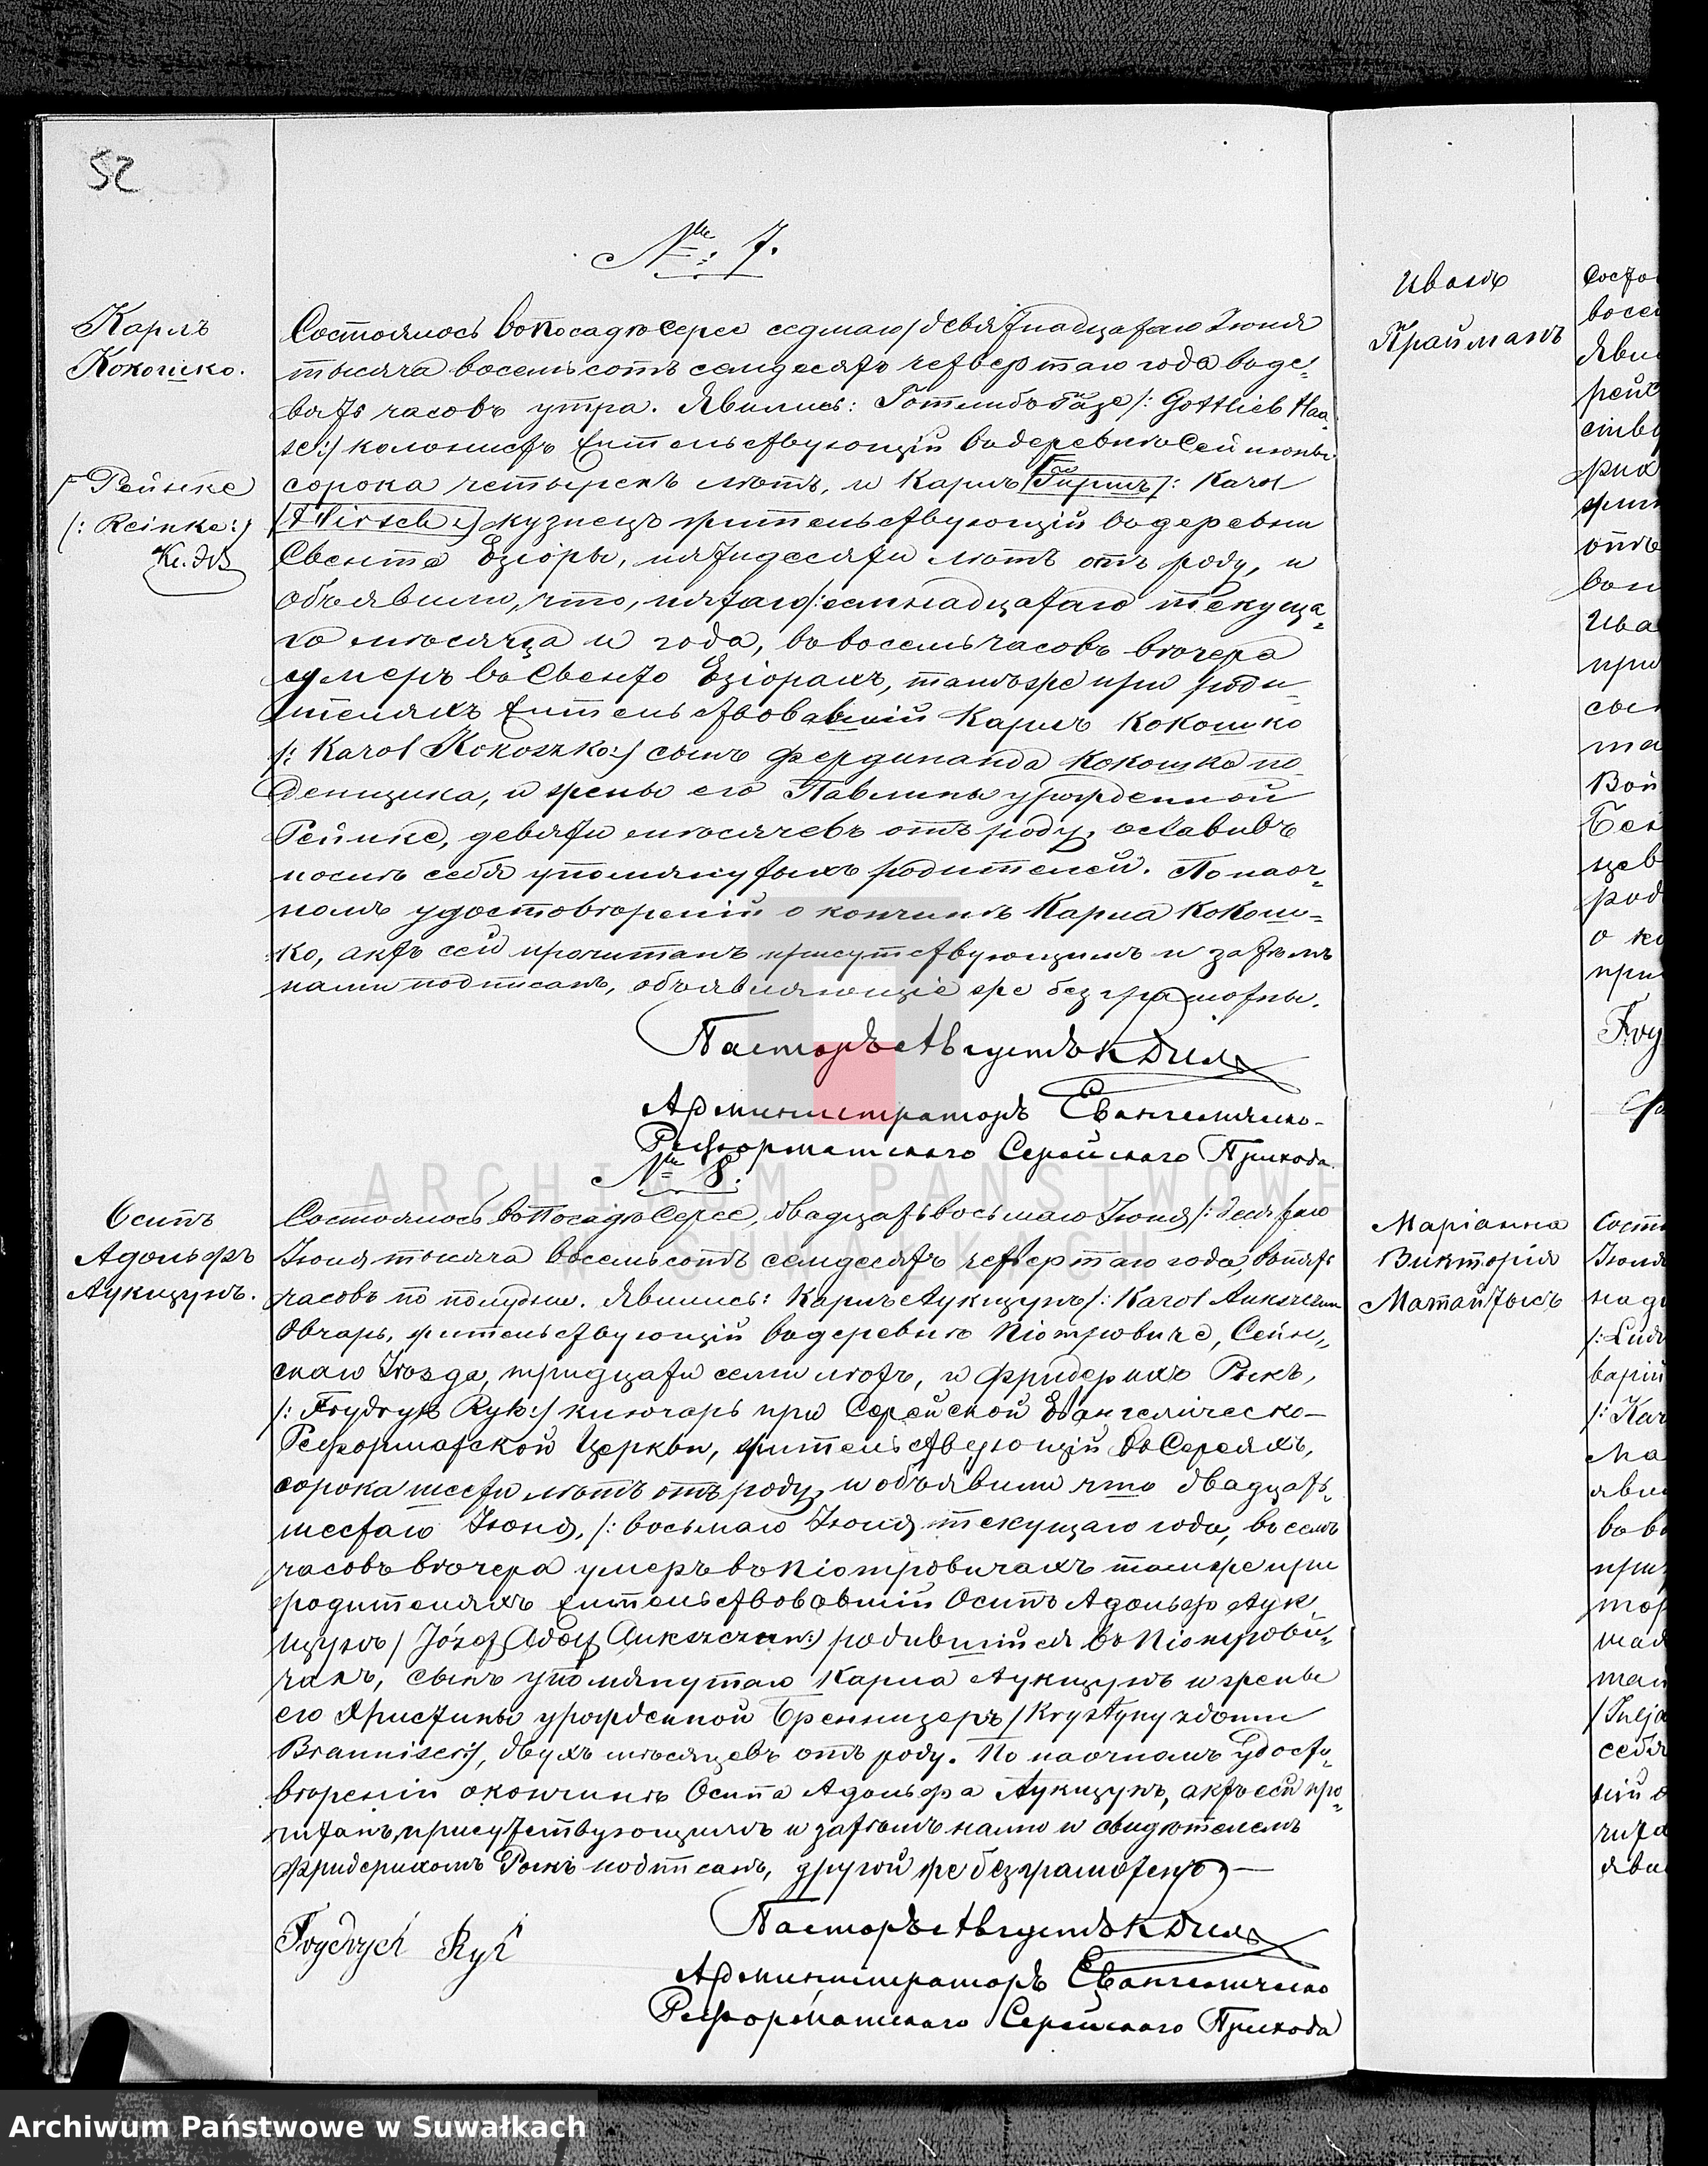 52
№: 7.
Карлъ
Кокошко.
Рейнке
/: Reinke:/
Состоялось въ посадѣ Серее седмаго/девятнадцатаго Іюня
тысяча восемьсотъ семдесятъ четвертаго года въ де-
вять часовъ утра. Явились: Готлибъ Газе /: Gottlieb Haa-
se:/ колонистъ жительствующій въ деревнѣ
сорока четырехъ лѣтъ, и Карлъ Гиршъ /: Karol
Hirsch:/ кузнецъ жительствующій въ деревни
Свенто Езіоры, пятидесяти лѣтъ отъ роду, и
объявили, что, пятаго/семнадцатаго текуща-
го мѣсяца и года, въ восемь часовъ вѣчера
умеръ въ Свенто Езіорахъ, тамъ же при роди-
теляхъ жительствовавшій Карлъ Кокошко
/: Karol Kokoszko:/ сынъ Фердинанда Кокошко по-
денщика, и жены его Павлины урожденной
Рейнке, девяти мѣсячевъ отъ роду, оставивъ
послѣ себя упомянутыхъ родителей. По наоч-
номъ удостовѣреніи о кончинѣ Карла Кокош-
ко, актъ сей прочитанъ присутствующимъ и затѣмъ
нами подписанъ, объявляющіе же безграмотны.
Пасторъ Августъ
Администраторъ Евангелическо-
Реформатскаго Серейскаго Прихода.
№ 8.
Осипъ
Адольфъ
Аукщунъ.
Состоялось въ Посадѣ Серее, двадцать восьмаго Іюня/: десятаго
Іюля тысяча восемьсотъ семдесятъ четвертаго года, въ пять
часовъ по полудни. Явились: Карлъ Аукщунъ /: Karol Aukszczun
Овчарь, жительствующій въ деревнѣ Піотровиче, Сейн-
скаго Уѣзда, тридцати семи лѣтъ, и Фридерихъ Рыкъ,
/: Frydryk Ryk:/ ключарь при Серейской Евангелическо-
Реформатской Церкви, жительствующій въ Сереяхъ,
сорока шести лѣтъ отъ роду, и объявили что двадцать
шестаго Іюня, /: восьмаго Іюля текущаго года, въ семь
часовъ вѣчера умеръ въ Піотровичахъ тамже при
родителяхъ жительствовавшій Осипъ Адольфъ Аук-
щунъ / Józef Adolf Aukszczun:/ родившійся въ Піотрови-
чахъ, сынъ упомянутаго Карла Аукщунъ и жены
его Христины урожденной Бреннизеръ / Krystyny zdomu
Brannizer:/, двухъ мѣсяцевъ отъ роду. По наочномъ удосто-
вѣреніи о кончинѣ Осипа Адольфа Аукщунъ, актъ сей про-
читанъ присутствующимъ и затѣмъ нами и свидѣтелемъ
Фридерихомъ Рыкъ подписанъ, другой же безграмотенъ —
Frydrych Ryk
Пасторъ Августъ
Администраторъ Евангелическо
Реформатскаго Серейскаго Прихода
Иванъ
Крайманъ
Маріанна
Викторія
Матайтысъ
ARCHIWUM PAŃSTWOWE
W SUWAŁKACH
Archiwum Państwowe w Suwałkach